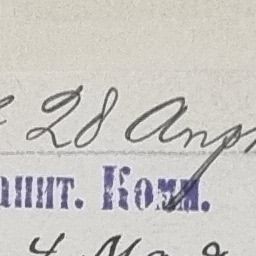 28 Апр
анит. Коми.
4 Мая